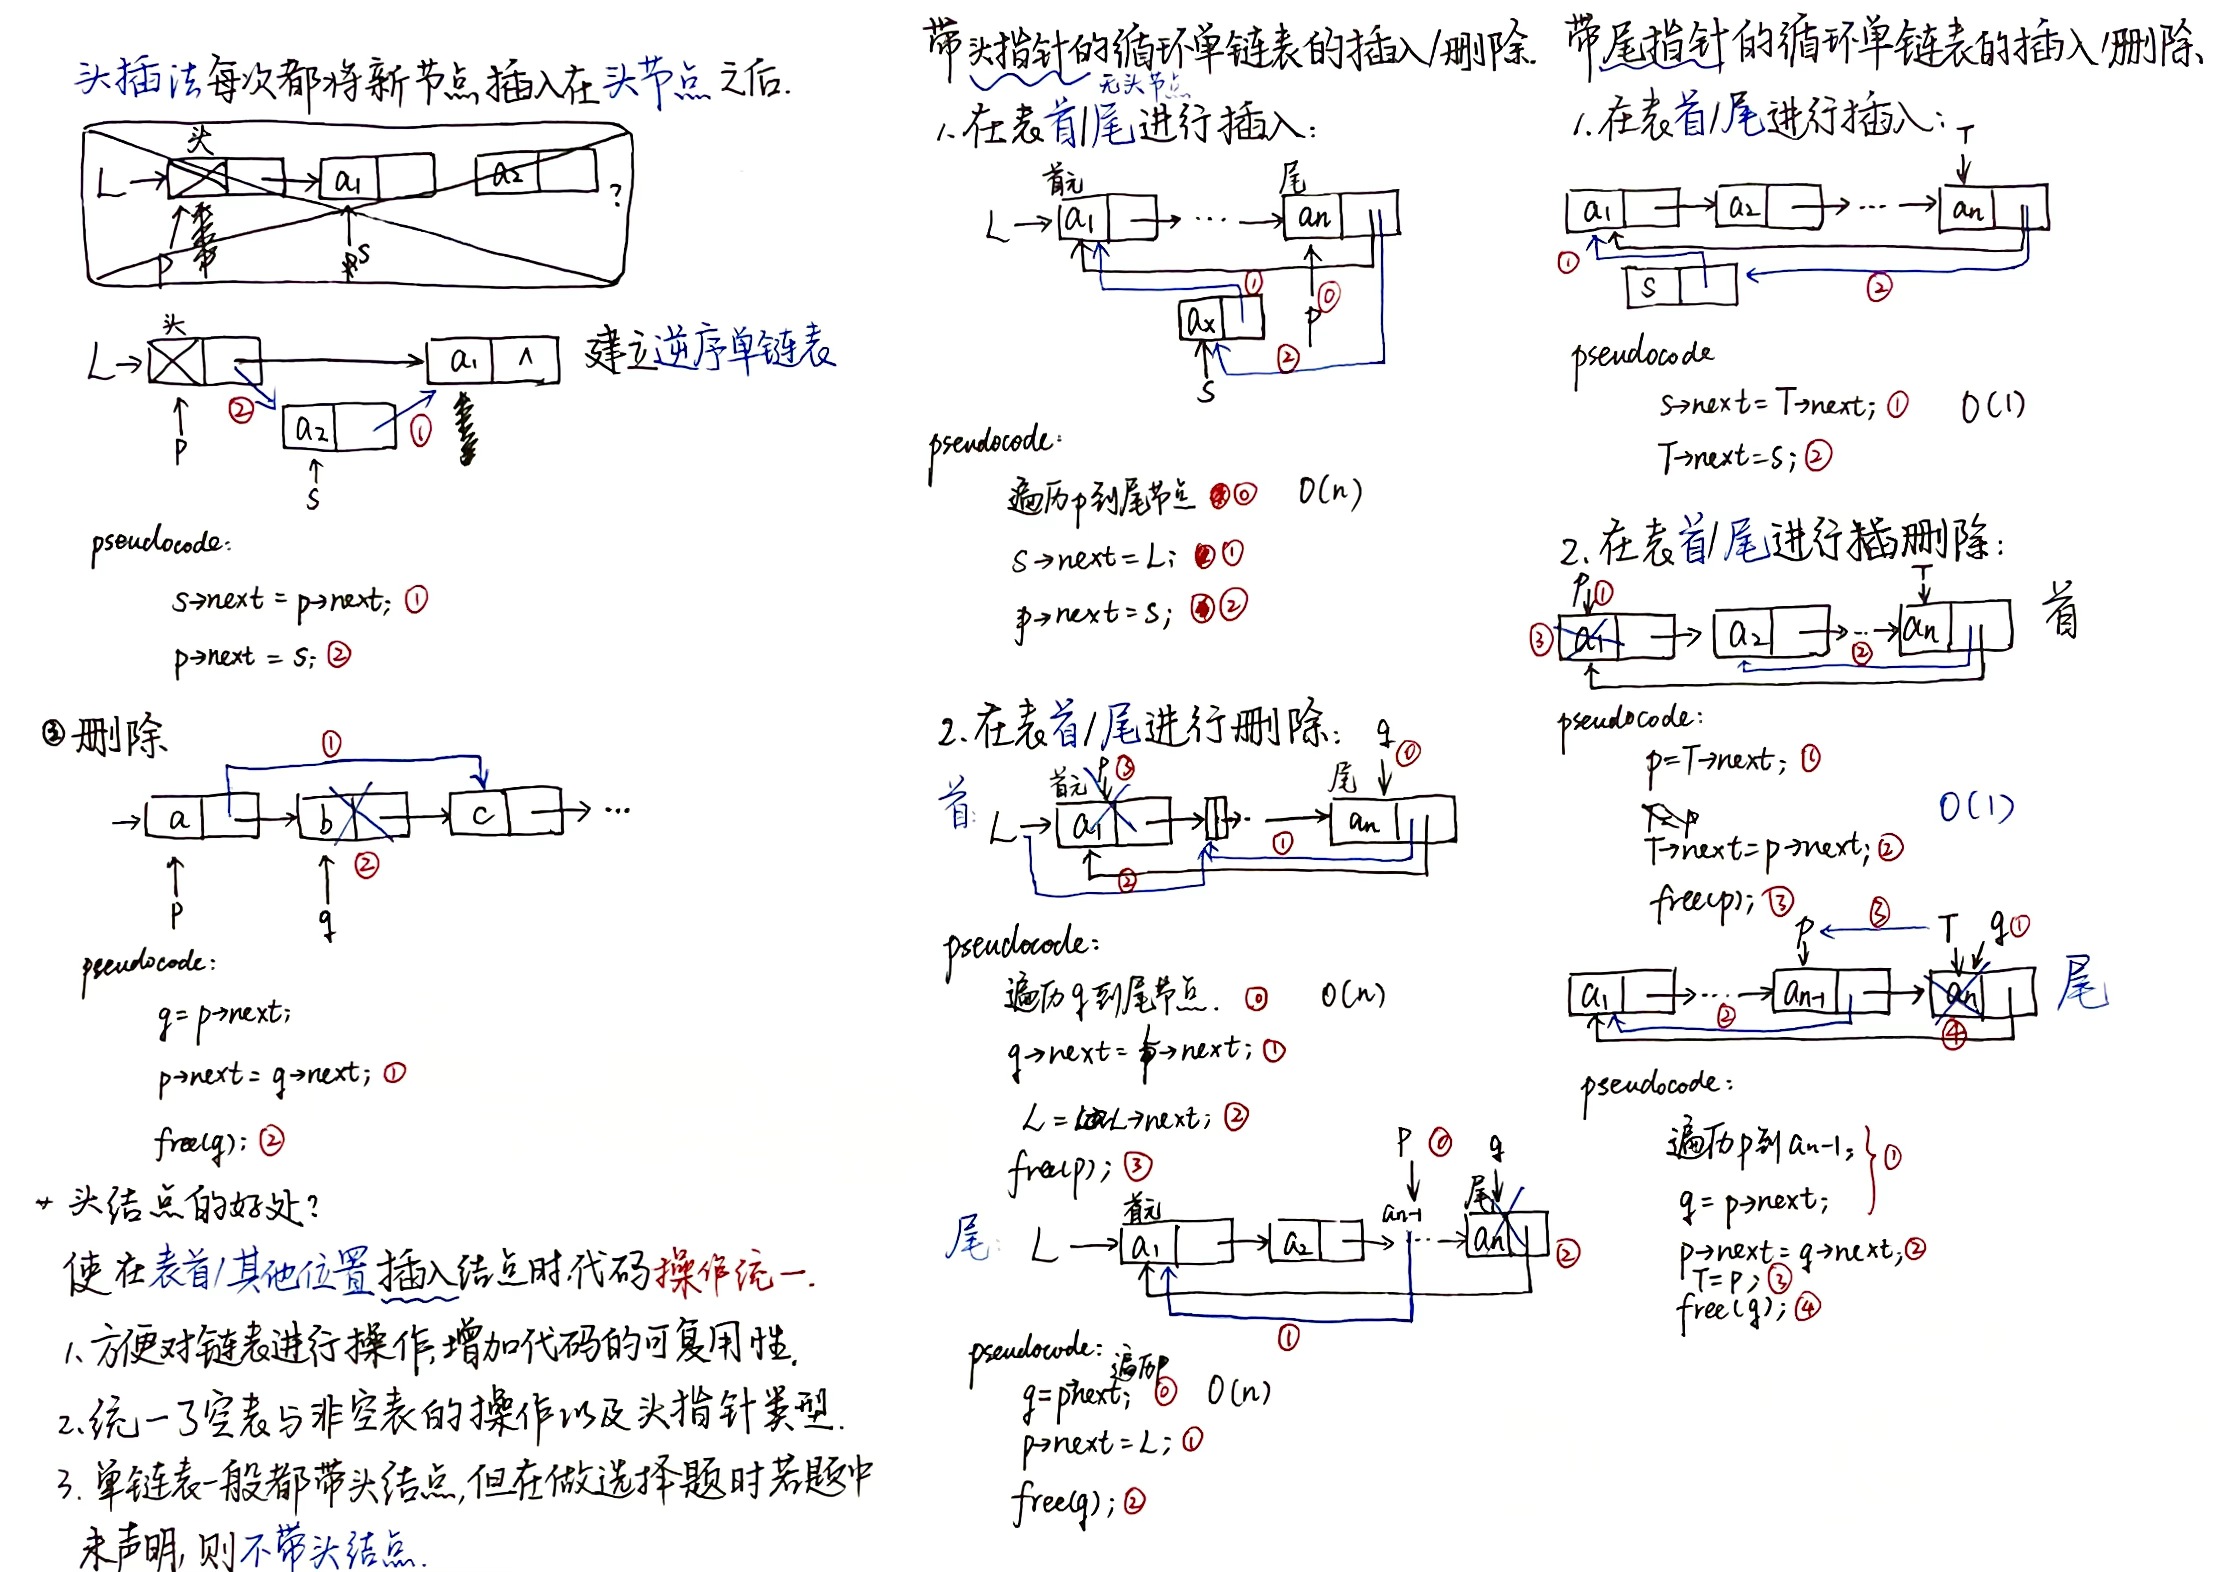 头插法每次都将新节点插入在头节点之后.
头
L → a1 a2 ?
p s
头
L → a1 ∧ 建立逆序单链表
② a2 ①
p
s
pseudocode:
s→next = p→next; ①
p→next = s; ②
③ 删除
①
→ a b c → ...
②
p q
pseudocode:
q = p→next;
p→next = q→next; ①
free(q); ②
* 头结点的好处?
使在表首/其他位置插入结点时,代码操作统一.
1. 方便对链表进行操作,增加代码的可复用性.
2. 统一了空表与非空表的操作以及头指针类型.
3. 单链表一般都带头结点,但在做选择题时若题中
未声明,则不带头结点.
带头指针的循环单链表的插入/删除.
无头节点
1. 在表首/尾进行插入:
首元 尾
L → a1 → ... → an
① ⓪
ax p
②
s
pseudocode:
遍历p到尾节点 ⓪ O(n)
s→next = L; ①
p→next = s; ②
2. 在表首/尾进行删除: q ⓪
首: 首元 p ③ 尾
L → a1 → ... → an
① ②
pseudocode:
遍历q到尾节点. ⓪ O(n)
q→next = p→next; ①
L = L→next; ②
free(p); ③
p ⓪ q
首元 an-1 尾
尾: L → a1 → a2 → ... → an ②
①
pseudocode: 遍历p
q = p→next; ⓪ O(n)
p→next = L; ①
free(q); ②
带尾指针的循环单链表的插入/删除、
1. 在表首/尾进行插入: T
a1 → a2 → ... → an
① s ②
pseudocode
s→next = T→next; ① O(1)
T→next = s; ②
2. 在表首/尾进行插删除:
p ① T
③ a1 → a2 → ... → an 首
②
pseudocode:
p = T→next; ①
O(1)
T→next = p→next; ②
free(p); ③
p ③ T q ①
a1 → ... → an-1 → an 尾
② ④
pseudocode:
遍历p到an-1;
q = p→next; } ①
p→next = q→next; ②
T = p; ③
free(q); ④